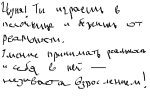 Ты играешь в
песочнице и бежишь от
реальности.
Умение принимать реальность
и себя в ней —
называется взрослением!